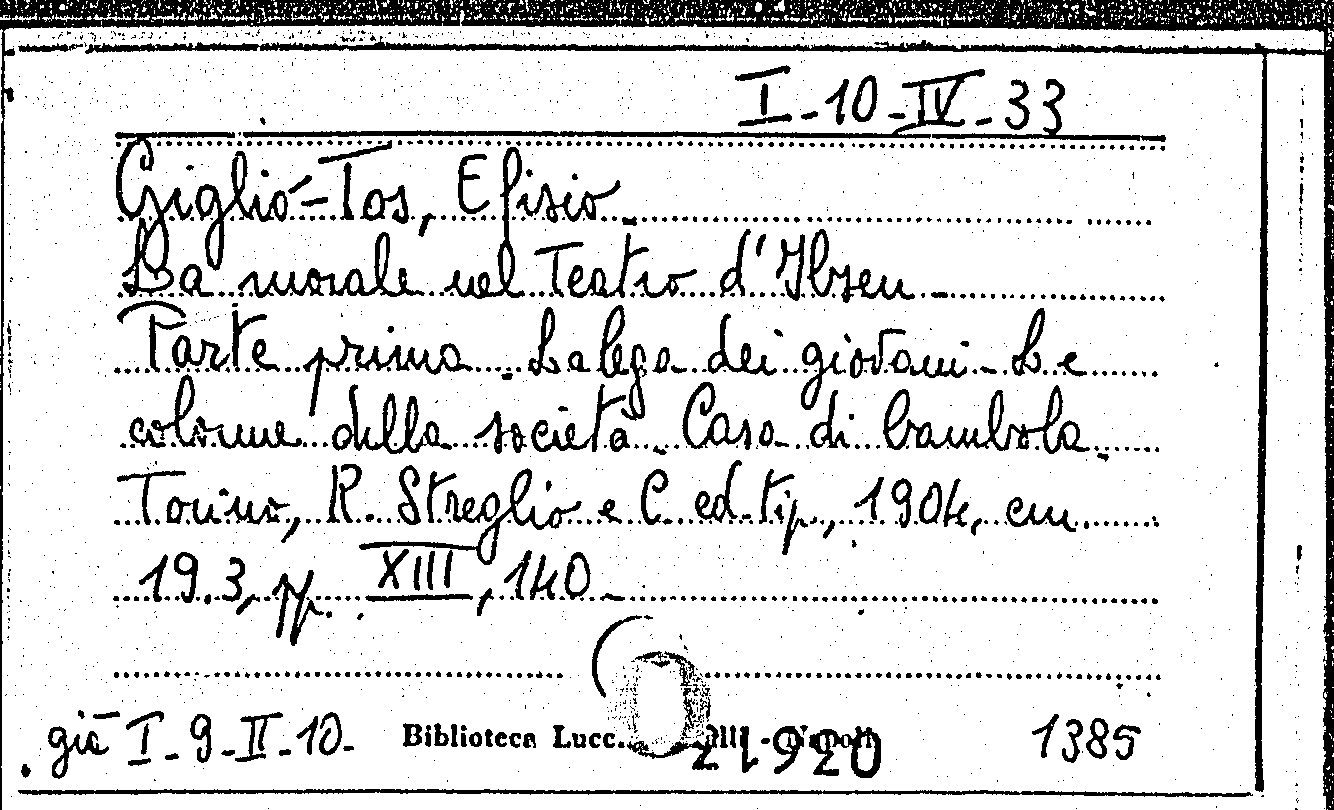 I-10-IV-33
Giglio-Tos, Efisio.
La morale nel Teatro d'Ibsen -
Parte prima - La lega dei giovani - Le
colonne della società - Casa di bambola.
Torino, R. Streglio e C. ed. tip., 1904, cm.
19.3, pp. XIII, 140 -
già I-9-II-10- Biblioteca Lucc. - Napoli 1385
21920